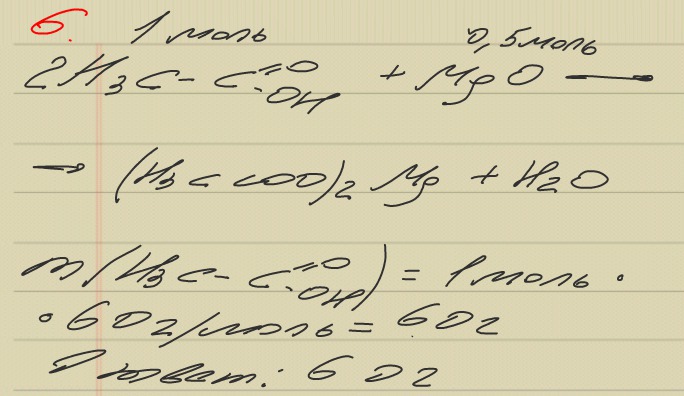 6. 1 моль 0,5 моль
2H3C-C=O OH + MgO →
→ (H3C COO)2 Mg + H2O
m(H3C-C=O OH) = 1 моль ·
· 60 г/моль = 60 г
Ответ: 60 г